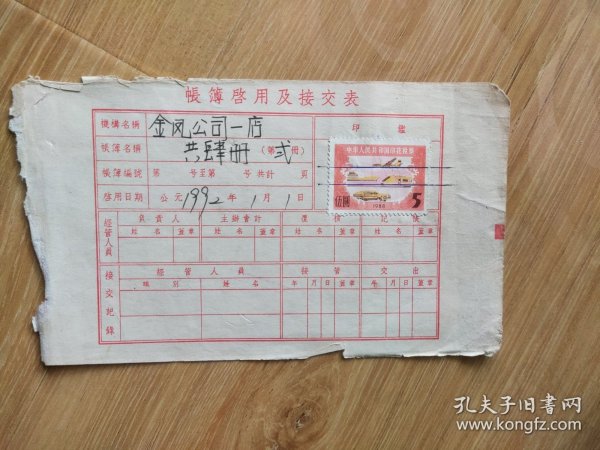 帳簿啓用及接交表
機構名稱 金凤公司一店 印 鑑
帳簿名稱 共肆册 (第贰冊)
中华人民共和国印花税票
帳簿編號 第 号至第 号共計 頁
伍圆 1988 5
啓用日期 公元1992年1月1日
經管人員 負責人 主辦會計 覆核 記帳
姓名 蓋章 姓名 蓋章 姓名 蓋章 姓名 蓋章
接交記錄 經管人員 接管 交出
職別 姓名 年 月 日 蓋章 年 月 日 蓋章
孔夫子旧书网
www.kongfz.com